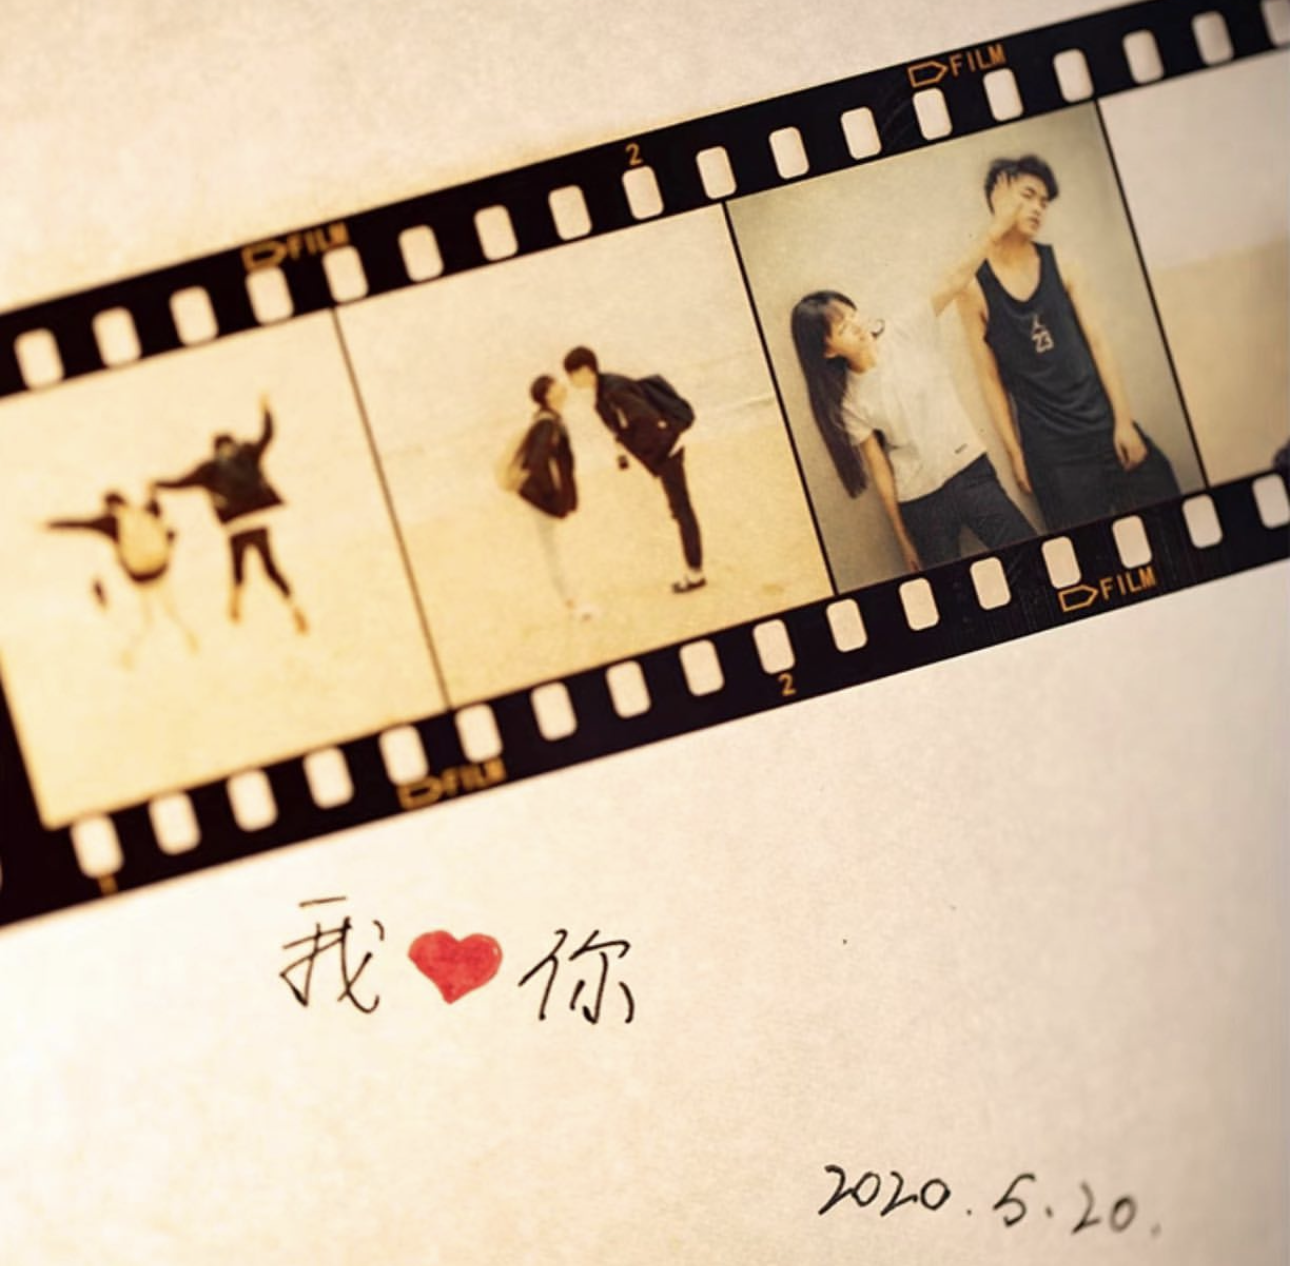 FILM
2
FILM
23
FILM
2
FILM
我❤你
2020.5.20.